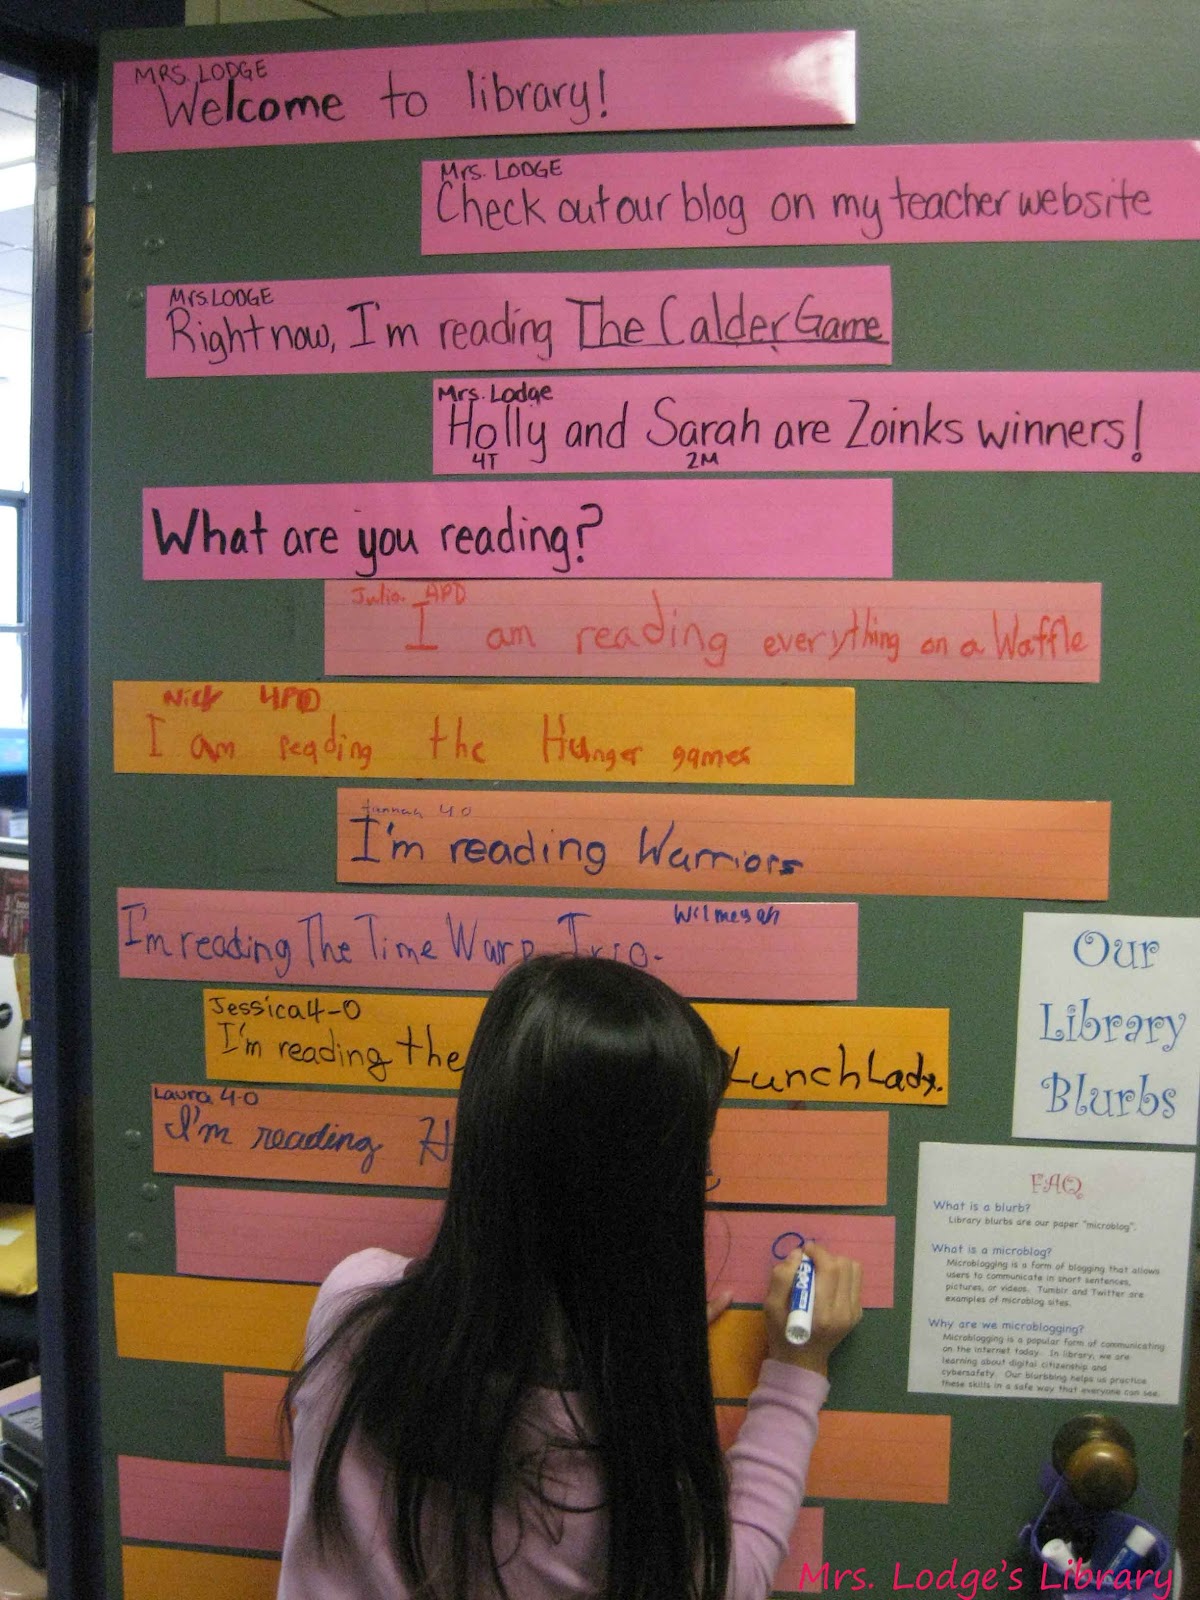 MRS. LODGE
Welcome to library!
Mrs. LODGE
Check out our blog on my teacher website
Mrs. LODGE
Right now, I'm reading The Calder Game
Mrs. Lodge
Holly and Sarah are Zoinks winners!
4T 2M
What are you reading?
Julia 4PD
I am reading everything on a Waffle
Nick 4PD
I am reading the Hunger games
Hannah 4O
I'm reading Warriors
Wilmeyah
I'm reading The Time Warp Trio.
Jessica 4-O
I'm reading the Lunch Lady.
Laura 4-O
I'm reading
Our
Library
Blurbs
FAQ
What is a blurb?
Library blurbs are our paper "microblog".
What is a microblog?
Microblogging is a form of blogging that allows
users to communicate in short sentences,
pictures, or videos. Tumblr and Twitter are
examples of microblog sites.
Why are we microblogging?
Microblogging is a popular form of communicating
on the internet today. In library, we are
learning about digital citizenship and
cybersafety. Our blurbbing helps us practice
these skills in a safe way that everyone can see.
EXPO
Mrs. Lodge's Library